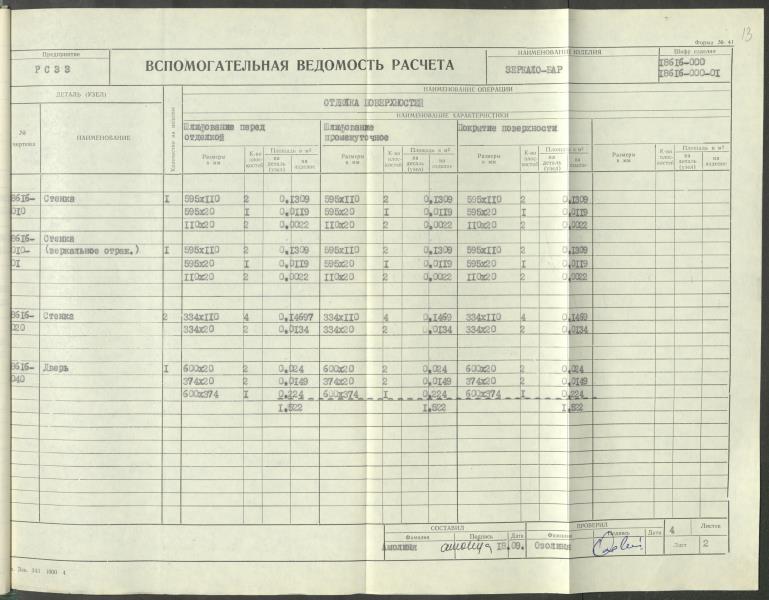 13
Форма № 41
Предприятие
РСЗЗ
ВСПОМОГАТЕЛЬНАЯ ВЕДОМОСТЬ РАСЧЕТА
НАИМЕНОВАНИЕ ИЗДЕЛИЯ
ЗЕРКАЛО-БАР
Шифр изделия
I8616-000
I8616-000-01
ДЕТАЛЬ (УЗЕЛ)
НАИМЕНОВАНИЕ ОПЕРАЦИИ
ОТДЕЛКА ПОВЕРХНОСТЕЙ
НАИМЕНОВАНИЕ ХАРАКТЕРИСТИКИ
№ чертежа НАИМЕНОВАНИЕ Количество на изделие
Шлифование перед отделкой Шлифование промежуточное Покрытие поверхности
Размеры в мм К-во плоскостей Площадь в м² на деталь (узел) на изделие Размеры в мм К-во плоскостей Площадь в м² на деталь (узел) на изделие Размеры в мм К-во плоскостей Площадь в м² на деталь (узел) на изделие Размеры в мм К-во плоскостей Площадь в м² на деталь (узел) на изделие
8616- Стенка I 595х110 2 0,1309 595х110 2 0,1309 595х110 2 0,1309
010 595х20 I 0,0119 595х20 I 0,0119 595х20 I 0,0119
110х20 2 0,0022 110х20 2 0,0022 110х20 2 0,0022
8616- Стенка
010- (зеркальное отраж.) I 595х110 2 0,1309 595х110 2 0,1309 595х110 2 0,1309
01 595х20 I 0,0119 595х20 I 0,0119 595х20 I 0,0119
110х20 2 0,0022 110х20 2 0,0022 110х20 2 0,0022
8616- Стенка 2 334х110 4 0,14697 334х110 4 0,1469 334х110 4 0,1469
020 334х20 2 0,0134 334х20 2 0,0134 334х20 2 0,0134
8616- Дверь I 600х20 2 0,024 600х20 2 0,024 600х20 2 0,024
040 374х20 2 0,0149 374х20 2 0,0149 374х20 2 0,0149
600х374 I 0,224 600х374 I 0,224 600х374 I 0,224
1,522 1,522 1,522
СОСТАВИЛ ПРОВЕРИЛ 4 Листов
Фамилия Подпись Дата Фамилия Подпись Дата
Амолиня 18.09. Озолиня Лист 2
Зак. 341 1000 4